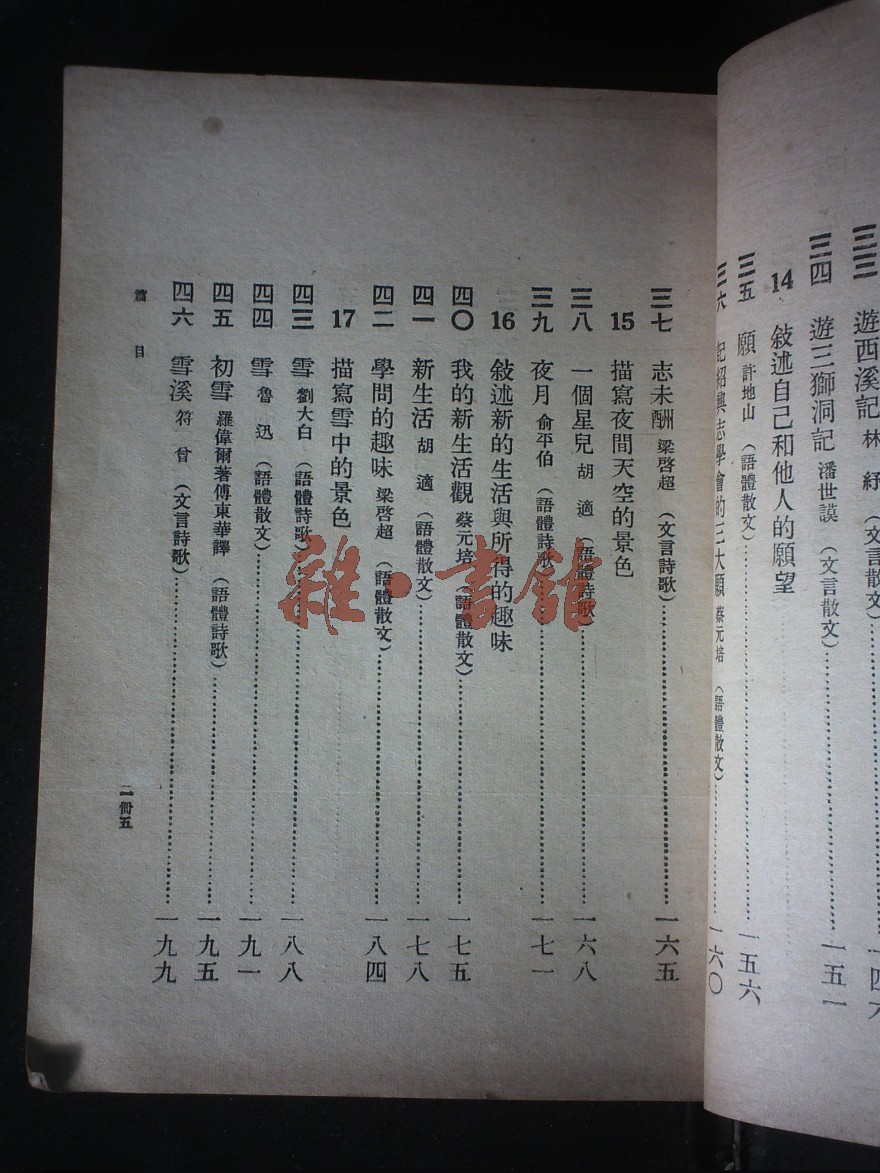 三三 遊西溪記 林紓 (文言散文) 一四六
三四 遊三獅洞記 潘世謨 (文言散文) 一五一
14 敍述自己和他人的願望
三五 願 許地山 (語體散文) 一五六
三六 記紹興志學會的三大願 蔡元培 (語體散文) 一六〇
三七 志未酬 梁啓超 (文言詩歌) 一六五
15 描寫夜間天空的景色
三八 一個星兒 胡適 (語體詩歌) 一六八
三九 夜月 俞平伯 (語體詩歌) 一七一
16 敍述新的生活與所得的趣味
四〇 我的新生活觀 蔡元培 (語體散文) 一七五
四一 新生活 胡適 (語體散文) 一七八
四二 學問的趣味 梁啓超 (語體散文) 一八四
17 描寫雪中的景色
四三 雪 劉大白 (語體詩歌) 一八八
四四 雪 魯迅 (語體散文) 一九一
四五 初雪 羅偉爾著傅東華譯 (語體詩歌) 一九五
四六 雪溪 符曾 (文言詩歌) 一九九
篇目
二冊五
雜·書館